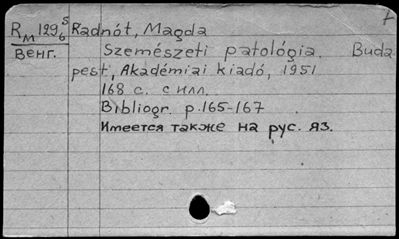 R_M 129⁵₆ Radnót, Magda
Венг. Szemészeti patológia. Buda
pest, Akadémiai kiadó, 1951
168 с. с илл.
Bibliogr. p. 165-167
Имеется также на рус. яз.